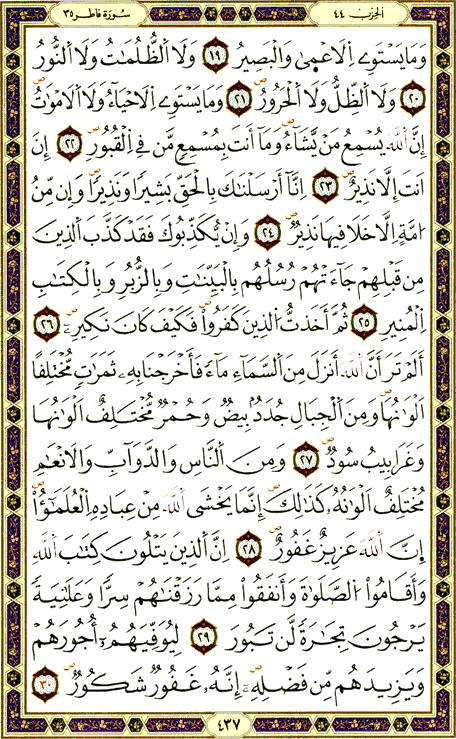 الحزب ٤٤ سورة فاطر ٣٥
وَمَا يَسْتَوِے اِ۬لَاعْم۪ىٰ وَالْبَصِيرُ ١٩ وَلَا اَ۬لظُّلُمَٰتُ وَلَا اَ۬لنُّورُ
٢٠ وَلَا اَ۬لظِّلُّ وَلَا اَ۬لْحَرُورُ ٢١ وَمَا يَسْتَوِے اِ۬لَاحْيَآءُ وَلَا اَ۬لَامْوَٰتُ
إِنَّ اَ۬للَّهَ يُسْمِعُ مَنْ يَّشَآءُ وَمَآ أَنتَ بِمُسْمِعٍ مَّن فِے اِ۬لْقُبُورِ ٢٢ إِنَ
اَنتَ إِلَّا نَذِيرٌ ٢٣ اِنَّآ أَرْسَلْنَٰكَ بِالْحَقِّ بَشِيراً وَنَذِيراً وَإِن مِّنُ
ا۟مَّةٍ اِلَّا خَلَا فِيهَا نَذِيرٌ ٢٤ وَإِنْ يُّكَذِّبُوكَ فَقَدْ كَذَّبَ اَ۬لذِينَ
مِن قَبْلِهِمْ جَآءَتْهُمْ رُسُلُهُم بِالْبَيِّنَٰتِ وَبِالزُّبُرِ وَبِالْكِتَٰبِ
اِ۬لْمُنِيرِ ٢٥ ثُمَّ أَخَذتُّ اُ۬لذِينَ كَفَرُواْ فَكَيْفَ كَانَ نَكِيرِۦٓ ٢٦
أَلَمْ تَرَ أَنَّ اَ۬للَّهَ أَنزَلَ مِنَ اَ۬لسَّمَآءِ مَآءً فَأَخْرَجْنَا بِهِۦ ثَمَرَٰتٍ مُّخْتَلِفاً
اَلْوَٰنُهَا وَمِنَ اَ۬لْجِبَالِ جُدَدٌۢ بِيضٌ وَحُمْرٌ مُّخْتَلِفٌ اَلْوَٰنُهَا
وَغَرَابِيبُ سُودٌ ٢٧ وَمِنَ اَ۬لنَّاسِ وَالدَّوَآبِّ وَالَانْعَٰمِ
مُخْتَلِفٌ اَلْوَٰنُهُۥ كَذَٰلِكَ إِنَّمَا يَخْشَى اَ۬للَّهَ مِنْ عِبَادِهِ اِ۬لْعُلَمَٰٓؤُاْ
إِنَّ اَ۬للَّهَ عَزِيزٌ غَفُورٌ ٢٨ اِنَّ اَ۬لذِينَ يَتْلُونَ كِتَٰبَ اَ۬للَّهِ
وَأَقَامُواْ اُ۬لصَّلَوٰةَ وَأَنفَقُواْ مِمَّا رَزَقْنَٰهُمْ سِرّاً وَعَلَٰنِيَةً
يَرْجُونَ تِجَٰرَةً لَّن تَبُورَ ٢٩ لِيُوَفِّيَهُمُۥٓ أُجُورَهُمْ
وَيَزِيدَهُم مِّن فَضْلِهِۦٓ إِنَّهُۥ غَفُورٌ شَكُورٌ ٣٠
٤٣٧